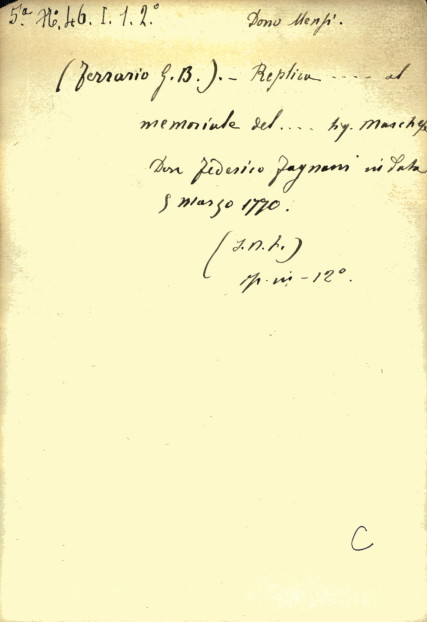 5.ª H. 46. I. 1. 2.° Dono Mensi.
(Ferrario G. B.). – Replica .... al
memoriale del .... Sig. Marchese
Don Federico Fagnani in data
5 marzo 1770.
(S. N. t.)
op. in – 12°.
C